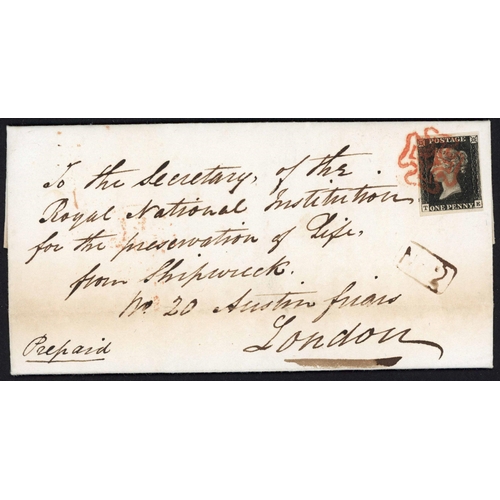 POSTAGE
ONE PENNY
To the Secretary, of the
Royal National Institution,
for the preservation of Life,
from Shipwreck.
No. 20 Austin friars
London
Prepaid